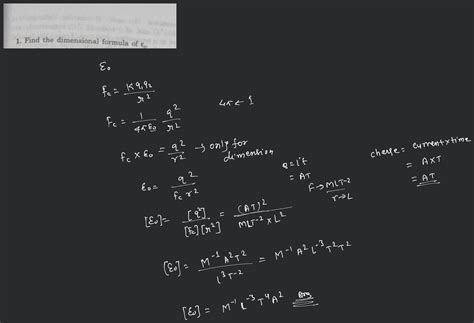 1. Find the dimensional formula of ε₀
ε₀
F_c = K q₁q₂ / r²
F_c = 1/4πε₀ q²/r²
4π ← 1
F_c × ε₀ = q²/r² → only for dimension
ε₀ = q² / F_c r²
Q = i't
= AT
F → MLT-2
r → L
charge = current × time
= A×T
= AT
[ε₀] = [q²] / [F_c][r²] = (AT)² / MLT-2 × L²
[ε₀] = M⁻¹ A²T² / L³ T⁻² = M⁻¹ A² L⁻³ T² T²
[ε₀] = M⁻¹ L⁻³ T⁴ A² Ans